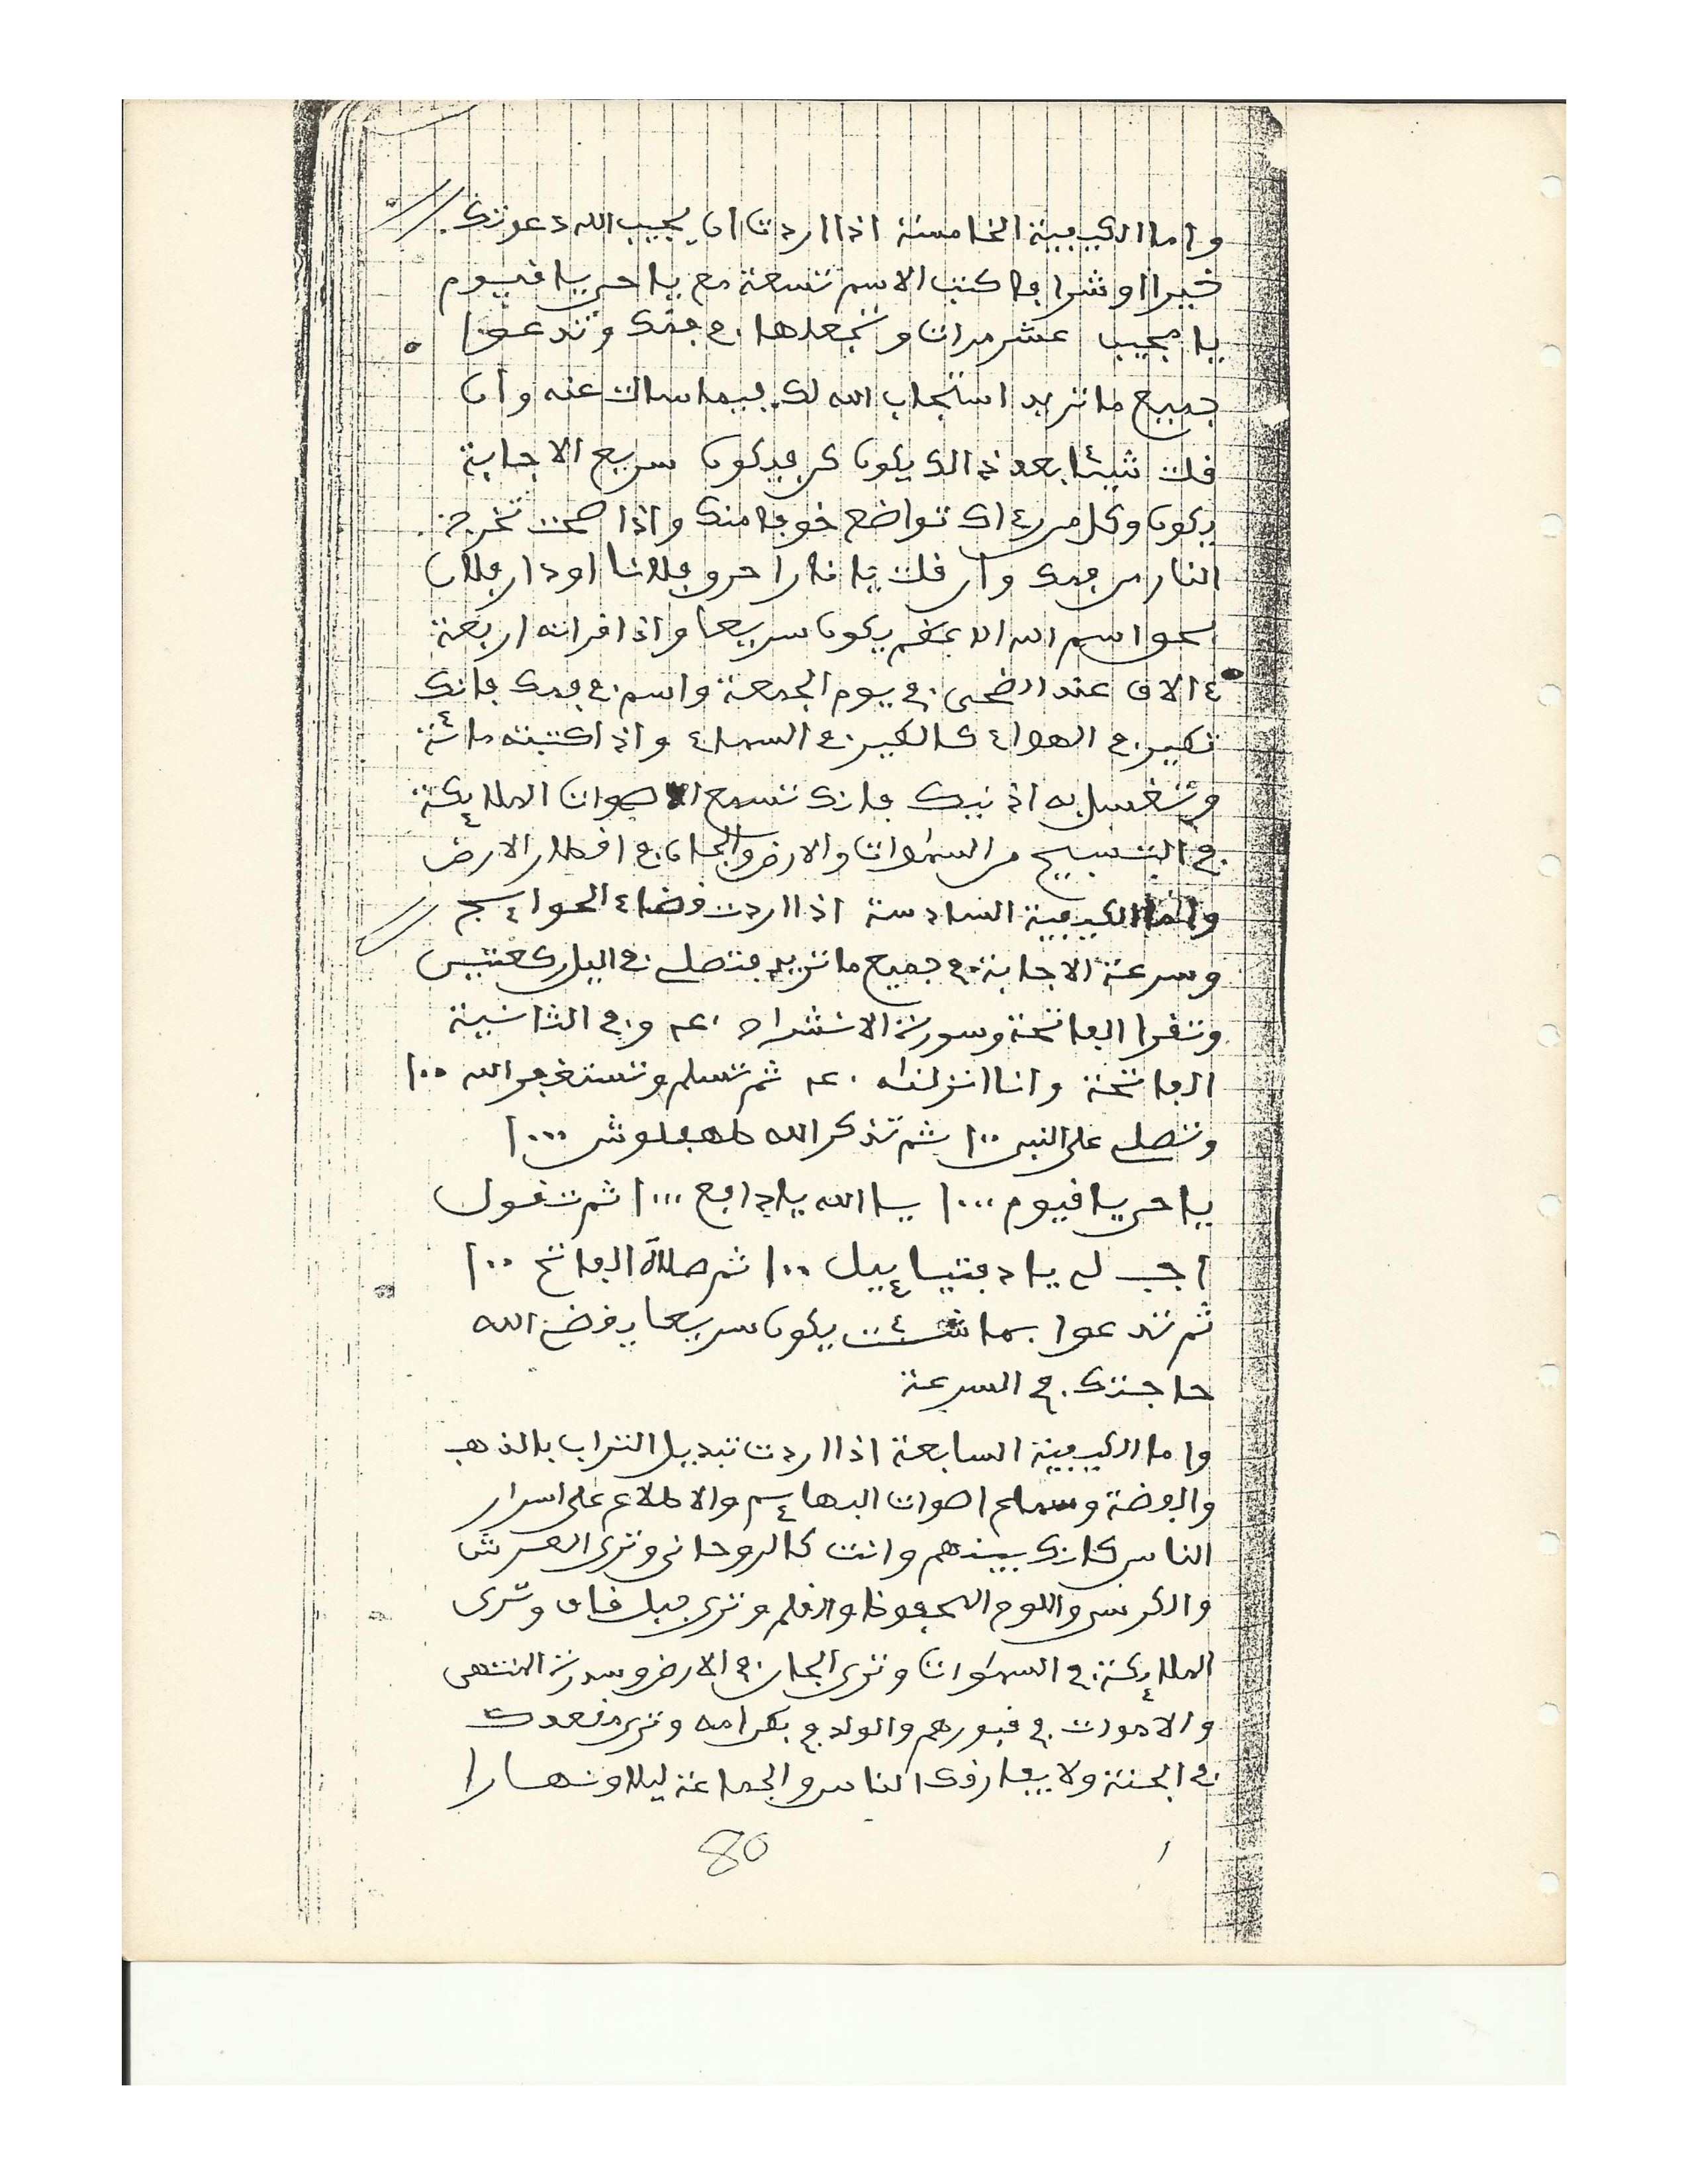 واما الكيفية الخامسة اذا اردت ان يجيب الله دعوتك
خيرا او شرا فاكتب الاسم تسعة مع يا حي يا قيوم
يا مجيب عشر مرات وتجعلها في فمك وتدعوا
جميع ما تريد استجاب الله لك فيما سالت عنه وان
قلت شيئا بعد ذالك يكون كن فيكون سريع الاجابة
يكون وكل من رءاك تواضع خوفا منك واذا صحت تخرج
النار من فمك وان قلت يا نار احرو فلانا او دار فلان
اسم الله الاعظم يكون سريعا واذا قراته اربعة
٤ الاف عند الضحى في يوم الجمعة واسم في فمك فانك
تطير في الهواء كالطير في السماء واذا كتبته مائة
وتغسل به اذنيك فانك تسمع الاصوات الملايكة
في التسبيح من السموات والارض والجان في اقطار الارض
واما الكيفية السادسة اذا اردت قضاء الحوايج
وسرعة الاجابة في جميع ما تريد فتصلي في اليل ركعتين
وتقرا الفاتحة وسورة الانشراح وفي الثانية
الفاتحة وانا انزلناه ثم تسلم وتستغفر الله ١٠٠
وتصلي على النبي ١٠٠ ثم تذكر الله طهفلوش ١٠٠٠
يا حي يا قيوم ١٠٠٠ يا الله يا دافع ١٠٠٠ ثم تقول
اجب لي يا دفتيايل ١٠٠ ثم صلاة الفاتح ١٠٠
ثم تدعوا بما شئت يكون سريعا يقض الله
حاجتك في السرعة
واما الكيفية السابعة اذا اردت تبديل التراب بالذهب
والفضة وسماع اصوات البهايم والاطلاع على اسرار
الناس كانك بينهم وانت كالروحاني وترى العرش
والكرسي واللوح المحفوظ والقلم وترى جبل قاف وترى
الملايكة في السموات وترى الجان في الارض وسدرة المنتهى
والاموات في قبورهم والولد في بطن امه وترى مقعدك
في الجنة ولا يفارقك الناس والجماعة ليلا ونهارا
80